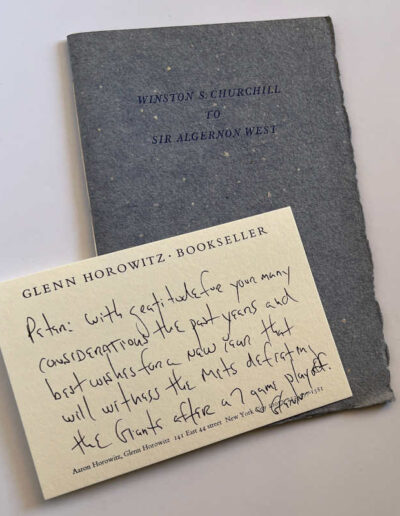 WINSTON S. CHURCHILL
TO
SIR ALGERNON WEST
GLENN HOROWITZ · BOOKSELLER
Peter: with gratitude for your many
considerations the past years and
best wishes for a new year that
will witness the Mets defeating
the Giants after a 7 game playoff.
Glenn
Aaron Horowitz, Glenn Horowitz 141 East 44 street New York